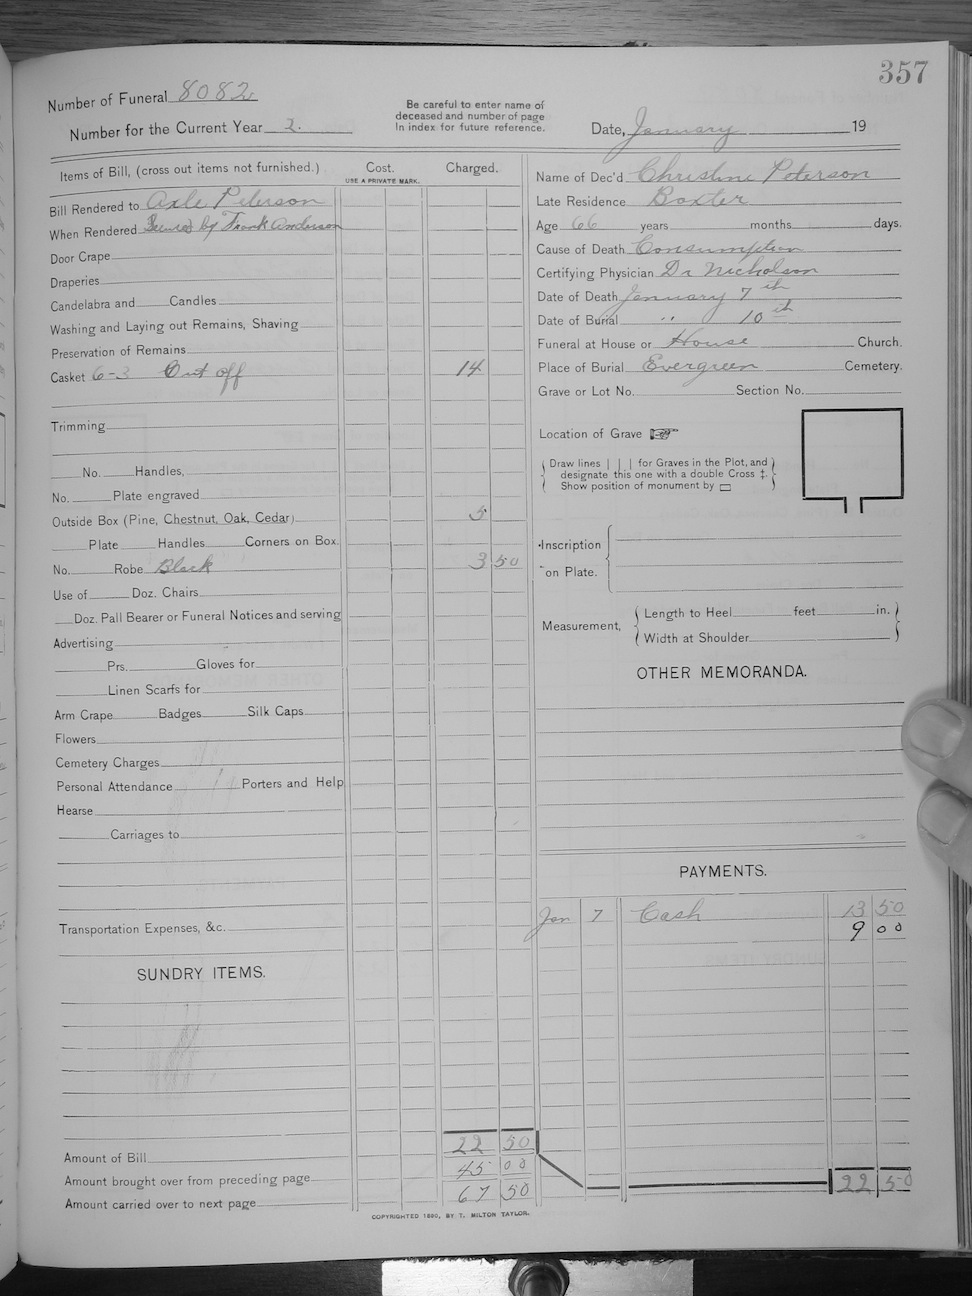 357
Number of Funeral 8082
Number for the Current Year 2.
Be careful to enter name of
deceased and number of page
in index for future reference.
Date, January 19
Items of Bill, (cross out items not furnished.)
Cost.
USE A PRIVATE MARK.
Charged.
Bill Rendered to Axle Peterson
When Rendered Secured by Frank Anderson
Door Crape
Draperies
Candelabra and Candles
Washing and Laying out Remains, Shaving
Preservation of Remains
Casket 6-3 Cut off 14
Trimming
No. Handles,
No. Plate engraved
Outside Box (Pine, Chestnut, Oak, Cedar) 5
Plate Handles Corners on Box.
No. Robe Black 3 50
Use of Doz. Chairs
Doz. Pall Bearer or Funeral Notices and serving
Advertising
Prs. Gloves for
Linen Scarfs for
Arm Crape Badges Silk Caps
Flowers
Cemetery Charges
Personal Attendance Porters and Help
Hearse
Carriages to
Transportation Expenses, &c.
SUNDRY ITEMS.
22 50
Amount of Bill
45 00
Amount brought over from preceding page
67 50
Amount carried over to next page
COPYRIGHTED 1880, BY T. MILTON TAYLOR.
Name of Dec'd Christine Peterson
Late Residence Baxter
Age 66 years months days.
Cause of Death Consumption
Certifying Physician Dr Nicholson
Date of Death January 7th
Date of Burial " 10th
Funeral at House or House Church.
Place of Burial Evergreen Cemetery.
Grave or Lot No. Section No.
Location of Grave
Draw lines | | | for Graves in the Plot, and
designate this one with a double Cross ‡.
Show position of monument by
Inscription
on Plate.
Measurement,
Length to Heel feet in.
Width at Shoulder
OTHER MEMORANDA.
PAYMENTS.
Jan 7 Cash 13 50
9 00
22 50